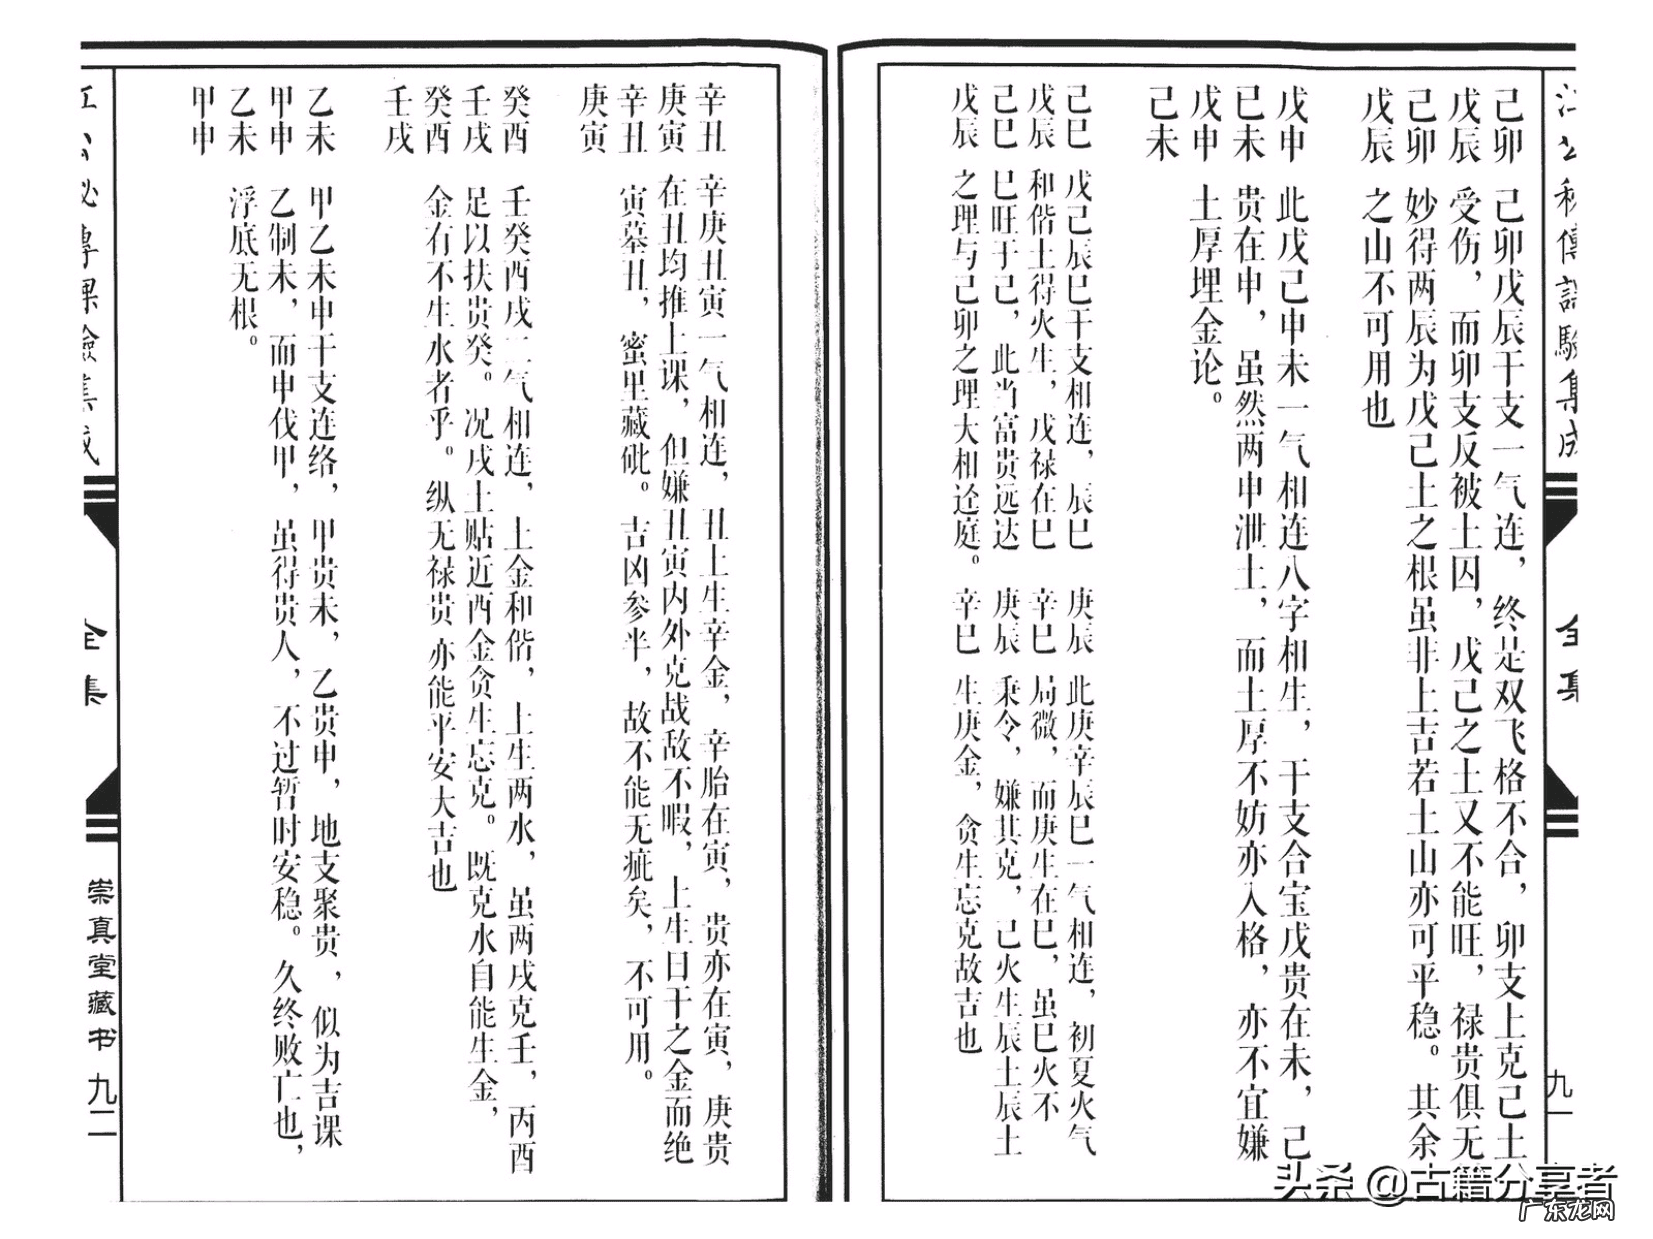 江公秘传课验集成
全集
九一
己卯 己卯戊辰干支一气连，终是双飞格不合，卯支上克己土
戊辰 受伤，而卯支反被土囚，戊己之土又不能旺，禄贵俱无
己卯 妙得两辰为戊己土之根虽非上吉若土山亦可平稳。其余
戊辰 之山不可用也
戊申 此戊己申未一气相连八字相生，干支合宝戊贵在未，己
已未 贵在申，虽然两申泄土，而土厚不妨亦入格，亦不宜嫌
戊申 土厚埋金论。
己未
己巳 戊己辰巳干支相连，辰巳
戊辰 和偕土得火生，戊禄在巳
己巳 巳旺于己，此当富贵远达
戊辰 之理与己卯之理大相迳庭。
庚辰 此庚辛辰巳一气相连，初夏火气
辛巳 局微，而庚生在巳，虽巳火不
庚辰 乘令，嫌其克，己火生辰土辰土
辛巳 生庚金，贪生忘克故吉也
辛丑 辛庚丑寅一气相连，丑土生辛金，辛胎在寅，贵亦在寅，庚贵
庚寅 在丑均推上课，但嫌丑寅内外克战敌不暇，上生日干之金而绝
辛丑 寅墓丑，蜜里藏砒。吉凶参半，故不能无疵矣，不可用。
庚寅
癸酉 壬癸酉戌二气相连，土金和偕，上生两水，虽两戌克壬，丙酉
壬戌 足以扶贵癸。况戌土贴近酉金贪生忘克。既克水自能生金，
癸酉 金有不生水者乎。纵无禄贵亦能平安大吉也
壬戌
乙未 甲乙未申干支连络，甲贵未，乙贵申，地支聚贵，似为吉课
甲申 乙制未，而申伐甲，虽得贵人，不过暂时安稳。久终败亡也，
乙未 浮底无根。
甲申
江公秘传课验集成
全集
崇真堂藏书 九二
头条 @古籍分享者
广东龙网